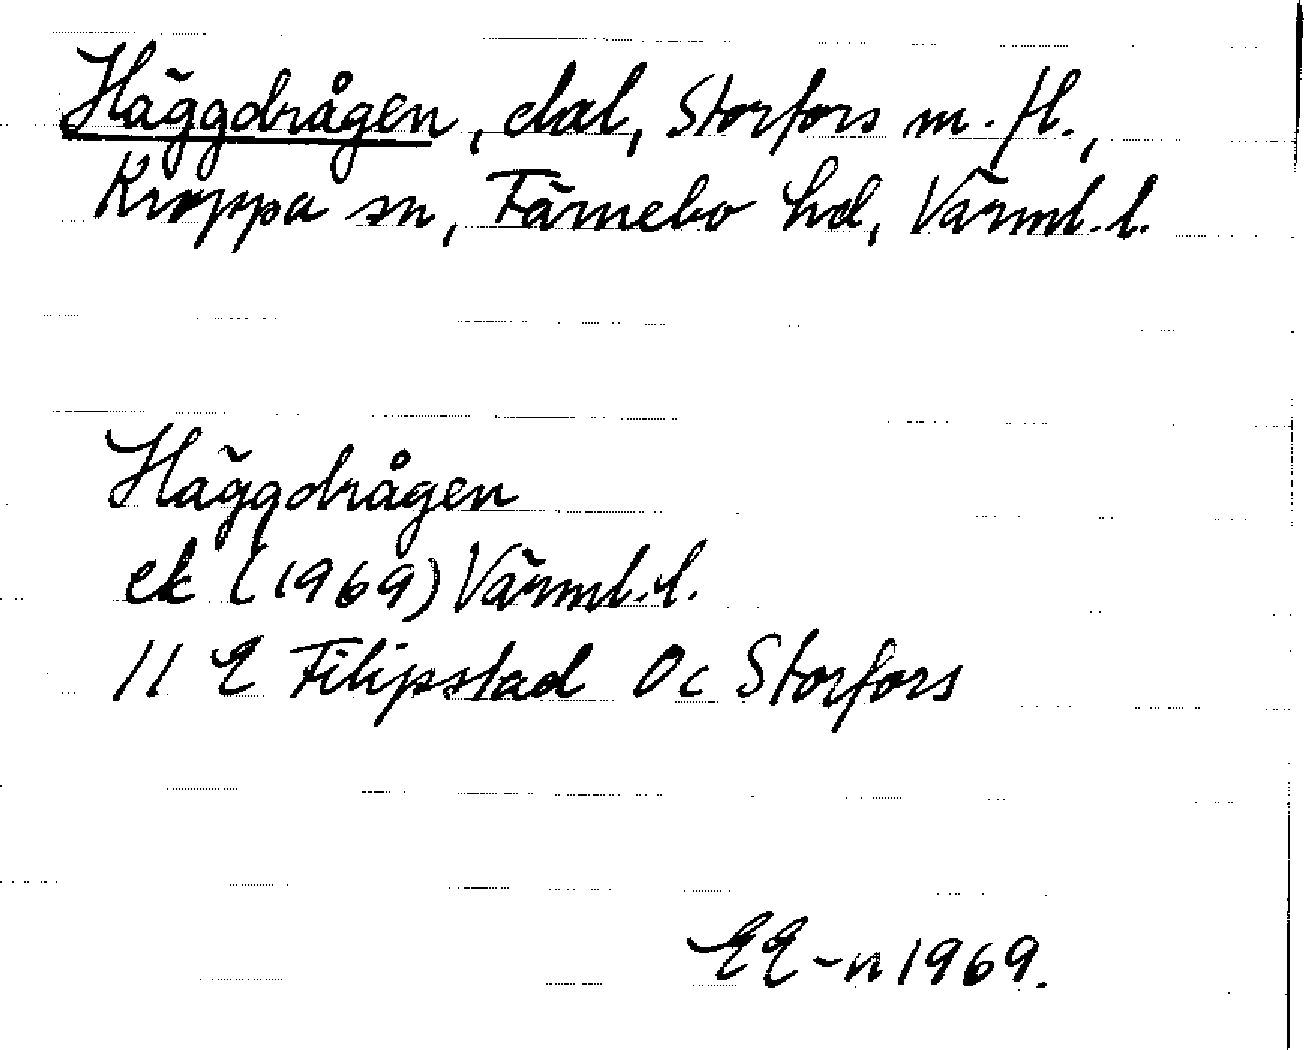 Häggdrågen, dal, Storfors m. fl.,
Kroppa sn, Färnebo hd, Värml. l.
Häggdrågen
ek (1969) Värml. l.
11 E Filipstad 0c Storfors
EE-n 1969.